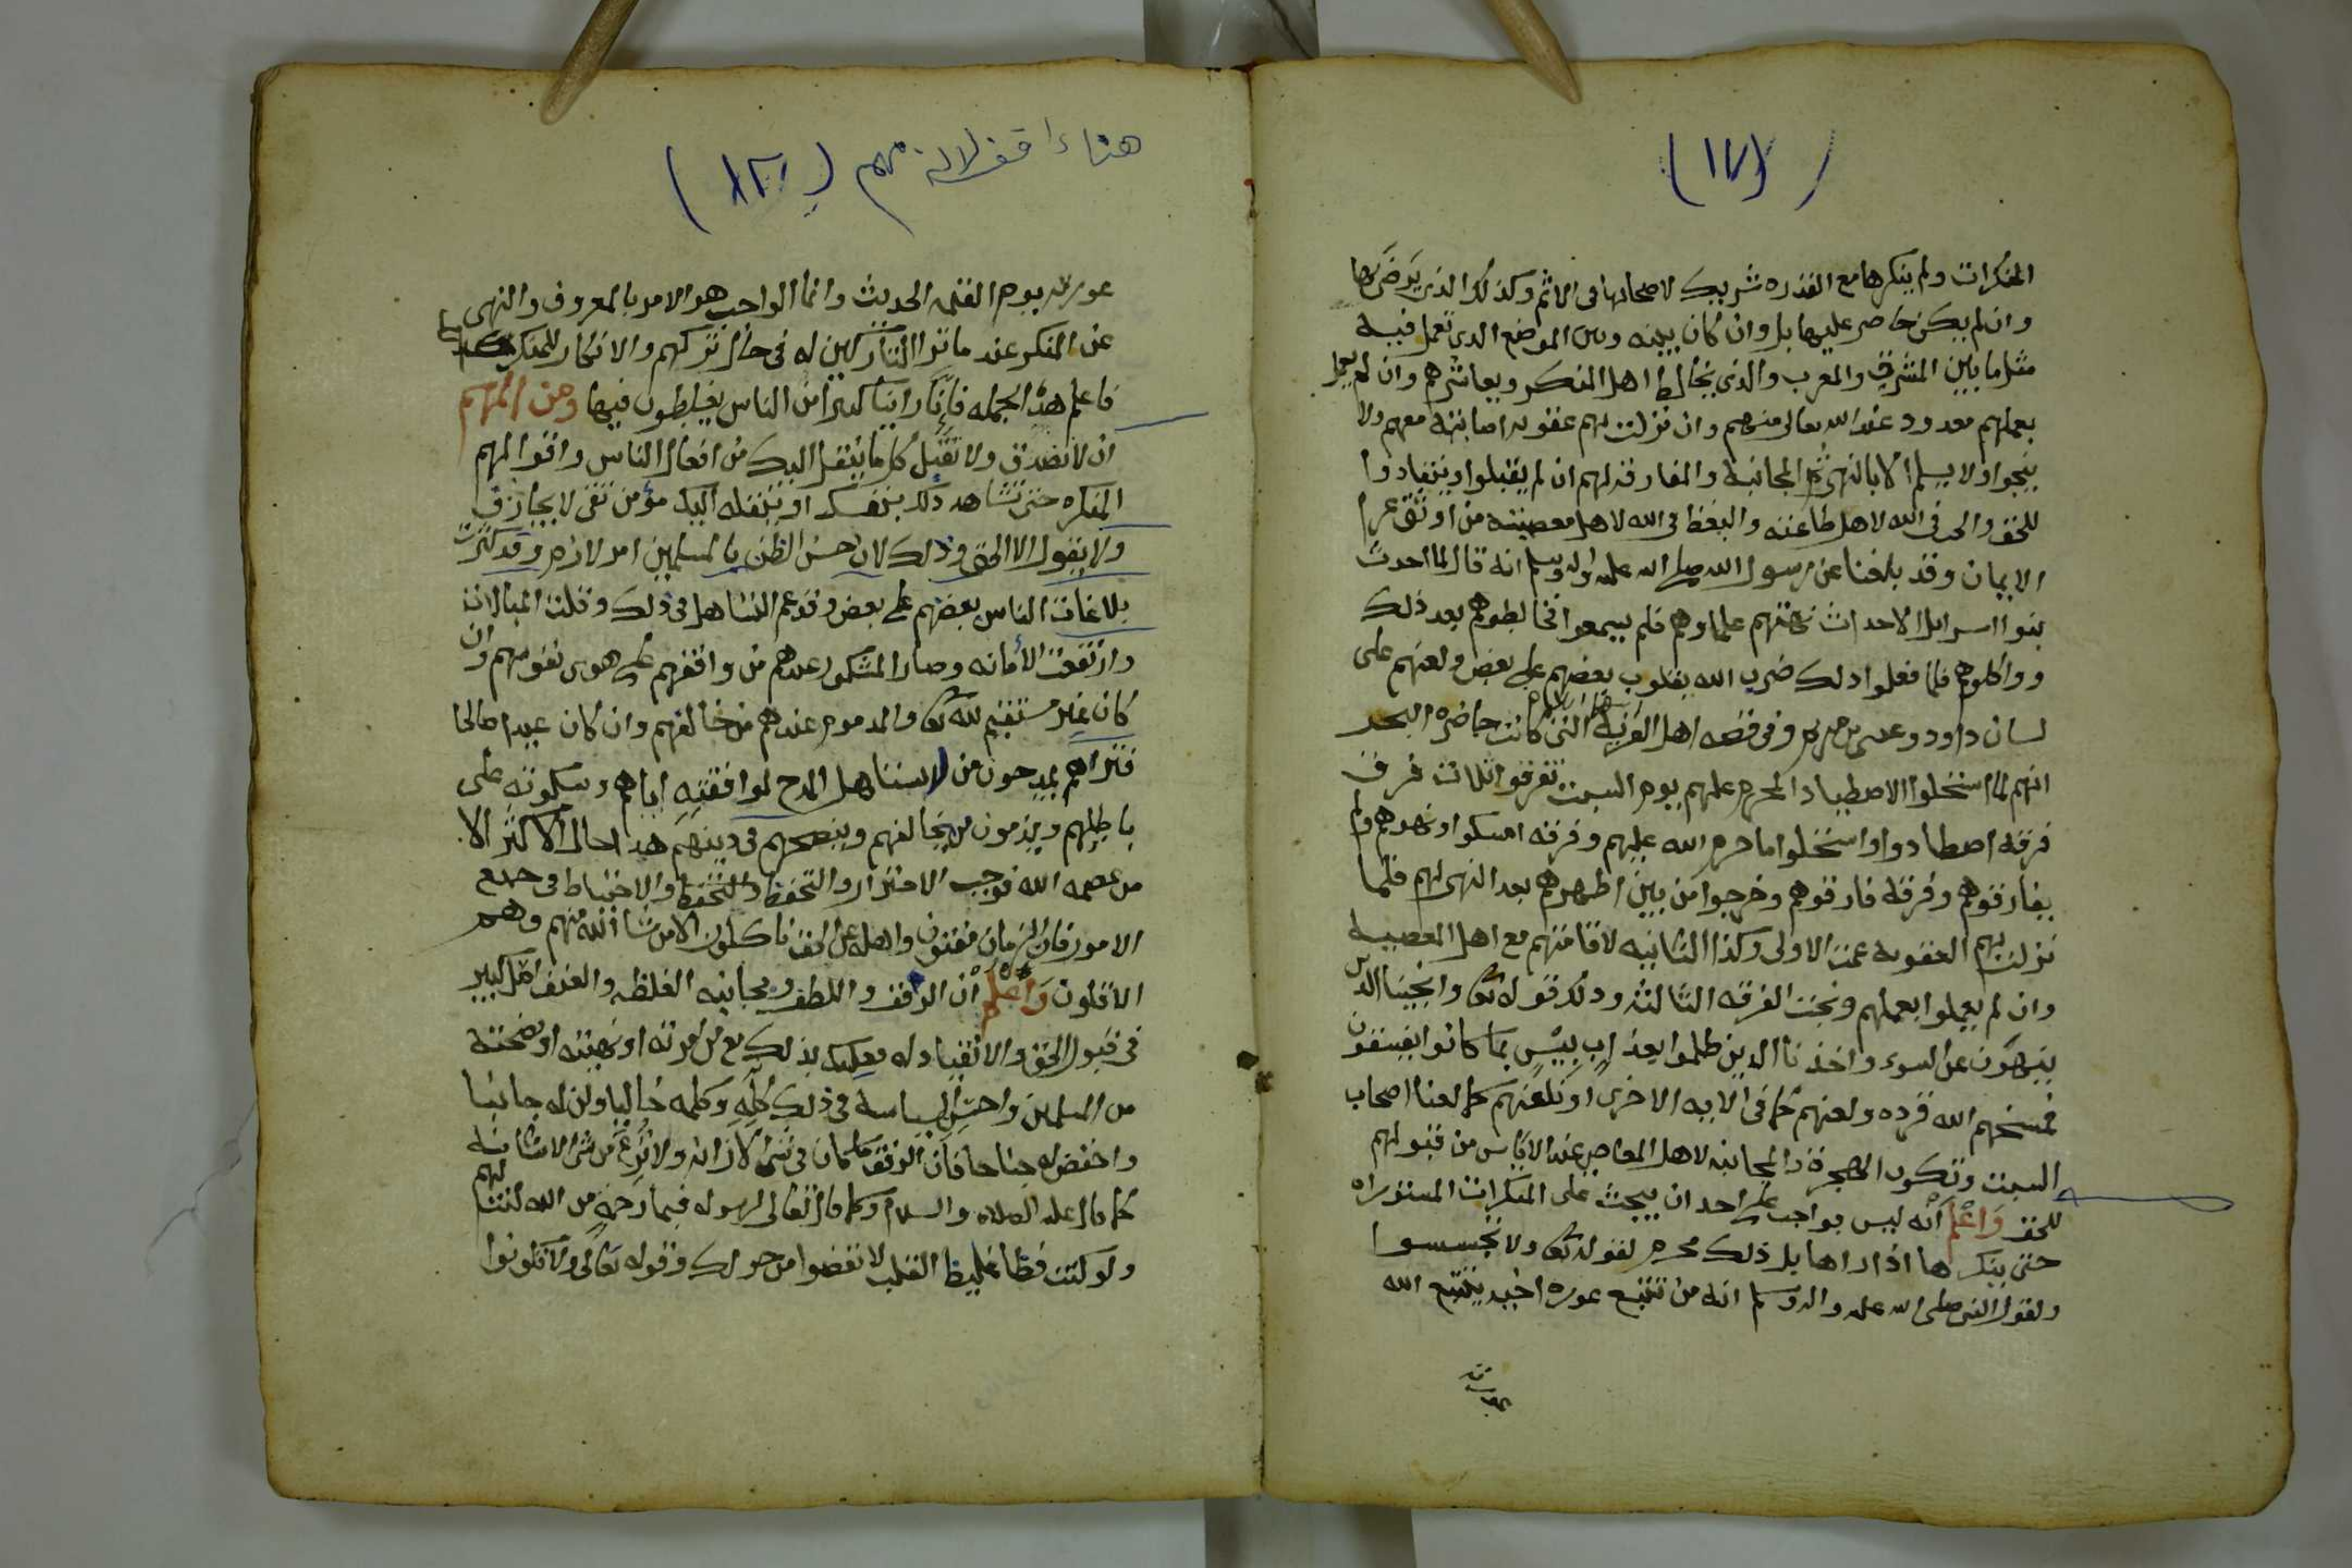 (١٧)
المنكرات ولم ينكرها مع القدره شريك لاصحابها في الاثم وكذلك الذي يرضى بها
وان لم يكن حاضر عليها بل وان كان بينه وبين الموضع الذي تعمل فيه
مثل ما بين المشرق والمغرب والذي يخالط اهل المنكر ويعاشرهم وان لم يعمل
بعملهم معدود عند الله تعالى منهم وان نزلت بهم عقوبه اصابته معهم ولا
ينجوا ولا يسلم الا بالنهي ثم المجانبة والمفارقه لهم ان لم يقبلوا وينقادوا
للحق والحب في الله لاهل طاعته والبغظ في الله لاهل معصيته من اوثق عرا
الايمان وقد بلغنا عن رسول الله صلى الله عليه واله وسلم انه قال لما احدث
بنوا اسرايل الاحداث نهتهم علماوهم فلم يسمعوا فخالطوهم بعد ذلك
وواكلوهم فلما فعلوا ذلك ضرب الله بقلوب بعضهم على بعض ولعنهم على
لسان داود وعيسى بن مريم وفي قصه اهل القرية التي كانت حاضره البحر
انهم لما استحلوا الاصطياد المحرم عليهم يوم السبت تفرقوا ثلاث فرق
فرقه اصطادوا واستحلوا ما حرم الله عليهم وفرقه امسكوا ونهوهم ولم
يفارقوهم وفرقة فارقوهم وخرجوا من بين اظهرهم بعد النهي لهم فلما
نزلت بهم العقوبه عمت الاولى وكذا الثانيه لاقامتهم مع اهل المعصية
وان لم يعملوا بعملهم ونجت الفرقه الثالثه وذلك قوله تعالى وانجينا الذين
ينهون عن السوء واخذنا الذين ظلموا بعذاب بيس بما كانوا يفسقون
فمسخهم الله قرده ولعنهم كما في الايه الاخرى او نلعنهم كما لعنا اصحاب
السبت وتكون الهجرة والمجانبه لاهل المعاصي عند الاياس من قبولهم
للحق واعلم انه ليس بواجب على احد ان يبحث على المنكرات المستوراه
حتى ينكرها اذا راها بل ذلك محرم لقوله تعالى ولا تجسسوا
ولقول النبي صلى الله عليه واله وسلم انه من تتبع عوره اخيه يتتبع الله
عورته
مهم (١٨)
عورته يوم القيمه الحديث وانما الواجب هو الامر بالمعروف والنهي
عن المنكر عند ما ترا التاركين له في حال تركهم والانكار للمنكر
فاعلم هذه الجمله فانا راينا كثيرا من الناس يغلطون فيها ومن المهم
ان لا تصدق ولا تقبل كل ما ينقل اليك من افعال الناس واقوالهم
المنكره حتى تشاهد ذلك بنفسك او ينقله اليك مؤمن تقي لا يجازف
ولا يقول الا الحق وذلك لان حسن الظن بالمسلمين امر لازم وقد كثرت
بلاغات الناس بعضهم على بعض وقد عم التساهل في ذلك وقلت المبالات
وارتفعت الأمانه وصار المشكور عندهم من وافقهم على هوى نفوسهم وان
كان غير مستقيم لله تعالى والمذموم عندهم من خالفهم وان كان عبدا صالحا
فتراهم يمدحون من لا يستاهل المدح لموافقته اياهم وسكوته على
باطلهم ويذمون من يخالفهم وينصحهم في دينهم هذا حال الاكثر الا
من عصمه الله فوجب الاحتراز والتحفظ والاحتياط في جميع
الامور فان الزمان مفتون واهله عن الحق ناكلون الا من شا الله منهم وهم
الاقلون واعلم أن الرفق واللطف ومجانبه الغلظه والعنف اصل كبير
في قبول الحق والانقياد له فعليك بذلك مع من امرته او نهيته او نصحته
من المسلمين واحسن السياسة في ذلك كله وكلمه خاليا ولن له جانبا
واخفض له جناحا فان الرفق ما كان في شي الا زانه ولا نزع من شي الا شانه
كما قال عليه الصلاه والسلام وكما قال تعالى لرسوله فبما رحمة من الله لنت لهم
ولو كنت فظا غليظ القلب لانفضوا من حولك وقوله تعالى ولا تكونوا